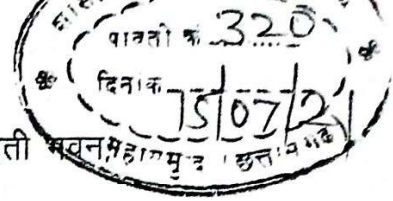 पावती क्र. 320
दिनांक 15/07/21
ती भवन, महासमुन्द (छत्तीसगढ़)